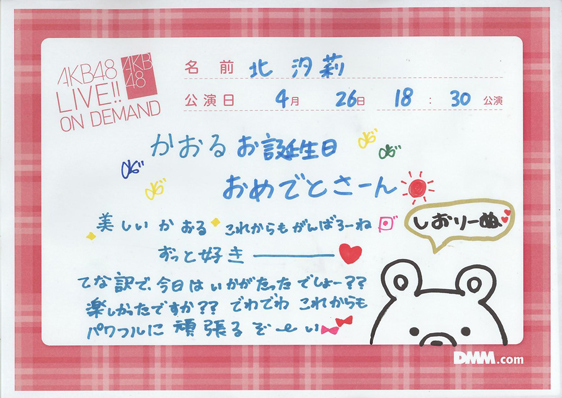 AKB48
LIVE!!
ON DEMAND
AKB
48
名前 北 汐莉
公演日 4月 26日 18:30 公演
かおる お誕生日
おめでとさーん
美しいかおる これからもがんばろーね
ずっと好き
しおりーぬ、
てな訳で、今日はいかがたったでしょー??
楽しかったですか?? でわでわ これからも
パワフルに 頑張るぞーい
DMM.com